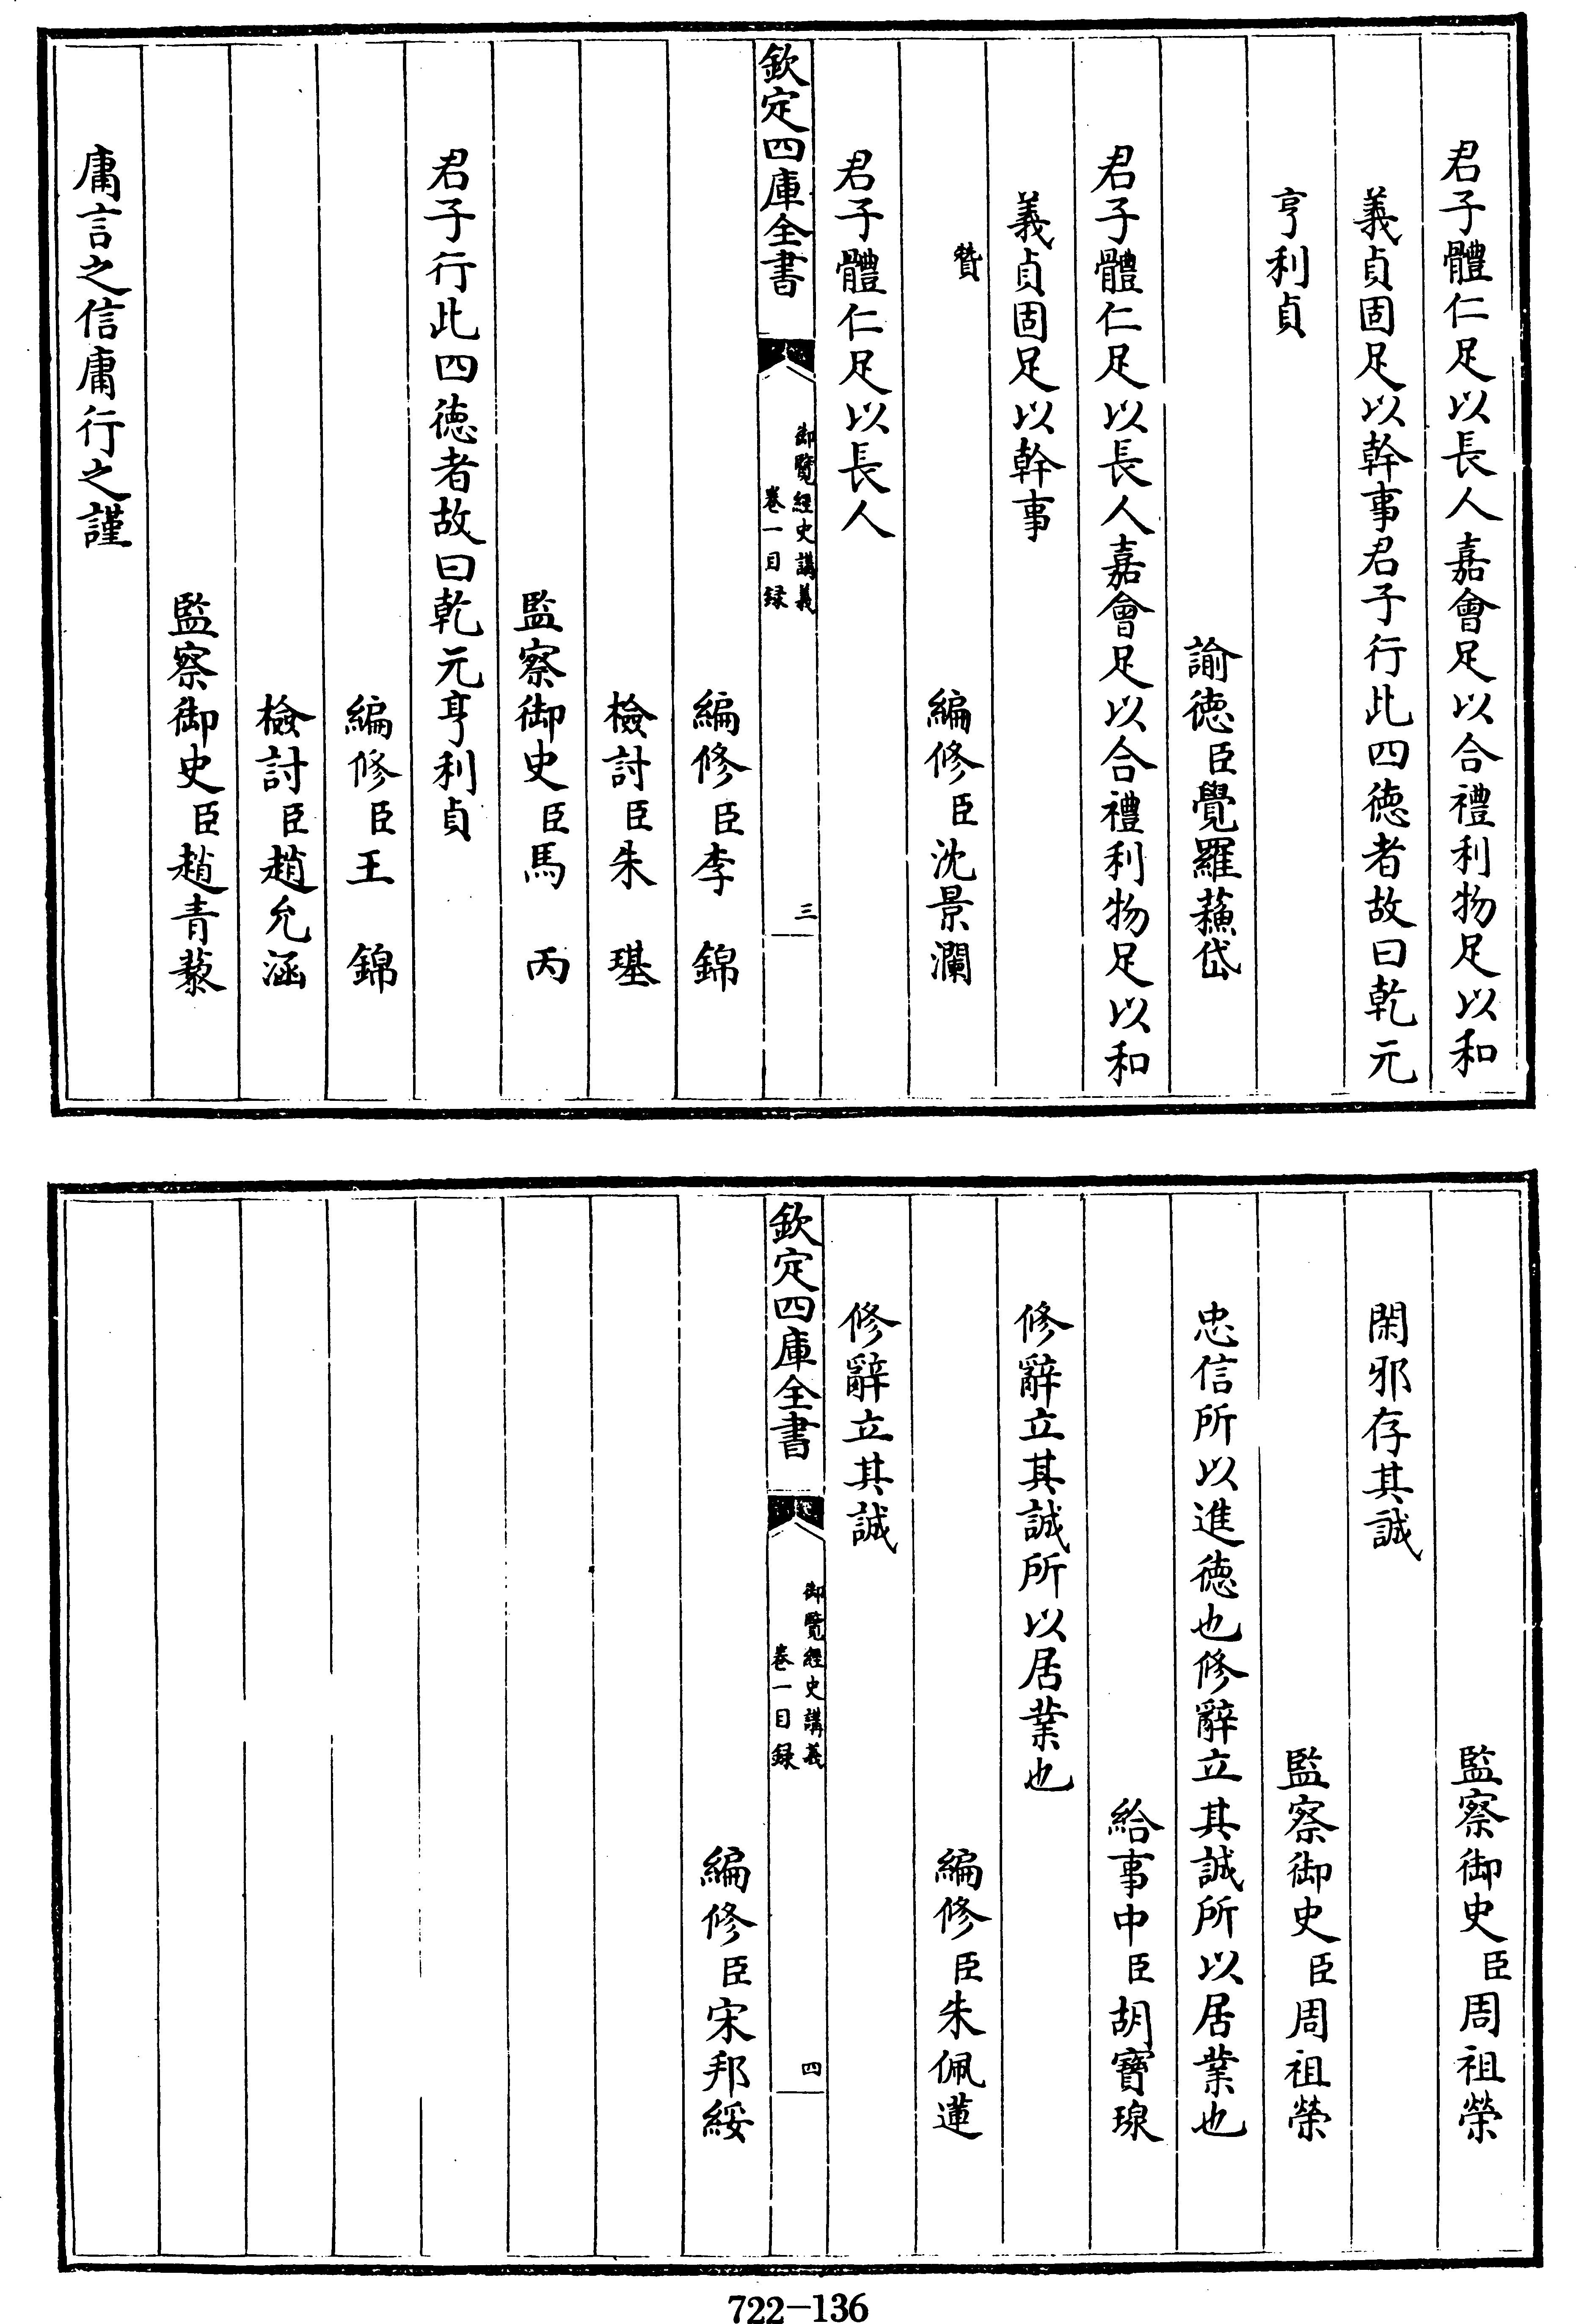 君子體仁足以長人嘉會足以合禮利物足以和
義貞固足以幹事君子行此四徳者故曰乾元
亨利貞
諭徳臣覺羅蘓岱
君子體仁足以長人嘉會足以合禮利物足以和
義貞固足以幹事
贊
編修臣沈景瀾
君子體仁足以長人
欽定四庫全書
御覽經史講義
卷一目録
三
編修臣李錦
檢討臣朱璂
監察御史臣馬丙
君子行此四徳者故曰乾元亨利貞
編修臣王錦
檢討臣趙允涵
監察御史臣趙青藜
庸言之信庸行之謹
監察御史臣周祖榮
閑邪存其誠
監察御史臣周祖榮
忠信所以進徳也修辭立其誠所以居業也
給事中臣胡寶瑔
修辭立其誠所以居業也
編修臣朱佩蓮
修辭立其誠
欽定四庫全書
御覽經史講義
卷一目録
四
編修臣宋邦綏
722-136